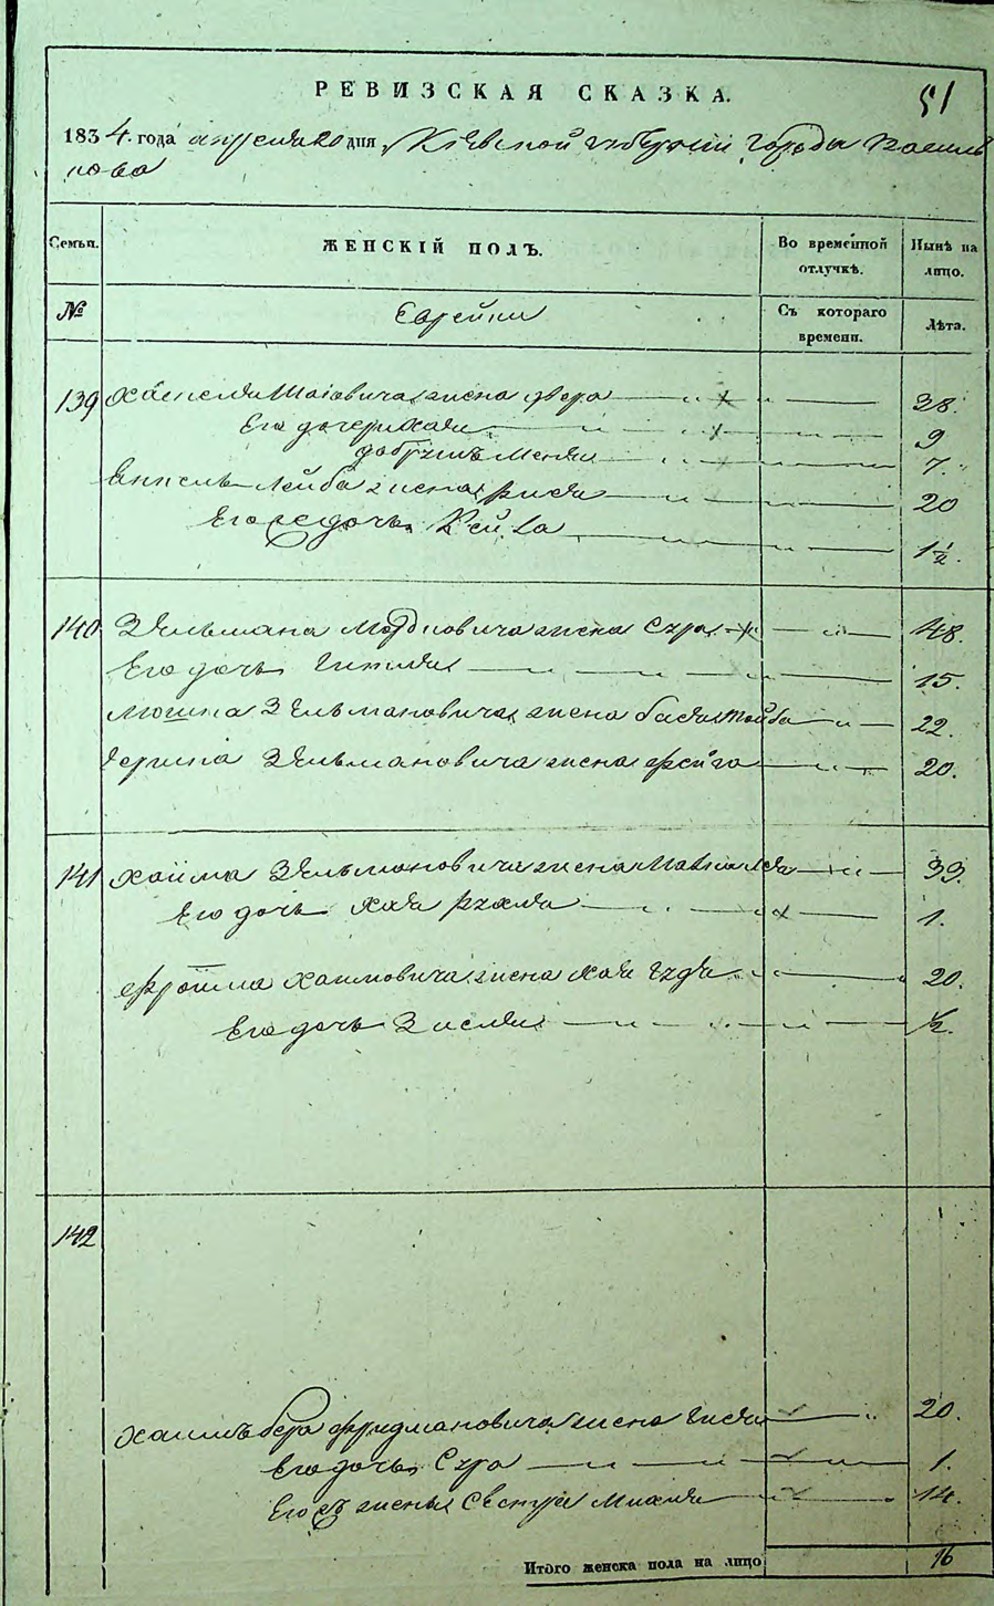 51
РЕВИЗСКАЯ СКАЗКА.
1834 года апреля 20 дня, Кіевской губерніи города Василь
кова
Семьи. ЖЕНСКІЙ ПОЛЪ. Во временной отлучкѣ. Нынѣ на лицо.
№ Еврейки Съ котораго времени. Лѣта.
139 Хаскеля Шаiовича жена двера 38.
Его дочери Хая 9
добришъ Меня 7.
Лейба жена рися 20
Его дочь Рейза 1½.
140 Зельмана Мордковича жена Сура 48.
Его дочь Гителя 15.
Мошка Зельмановича жена бася тойба 22.
Гершка Зельмановича жена фейга 20.
141 хаима Зельмановича жена 33.
Его дочь хая рухля 1.
фроима хаимовича жена хая Гудя 20.
Его дочь Зисля ½.
142
хаимъ бера фридмановича жена Гися 20.
Его дочь Сура 1.
Его жены сестра Михля 14.
Итого женска пола на лицо 16